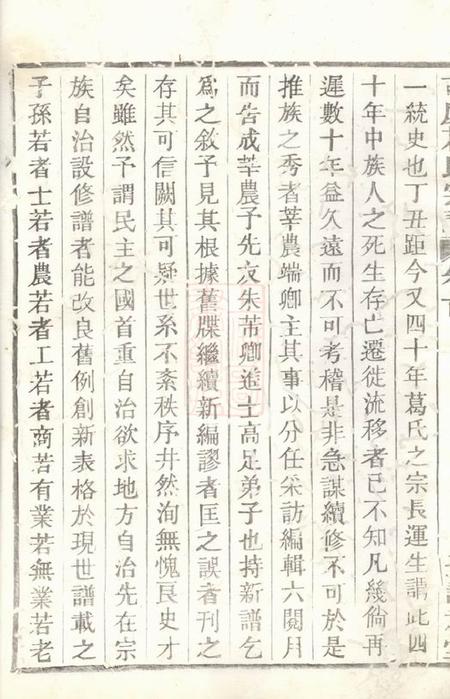 一統史也丁丑距今又四十年葛氏之宗長運生謂此四
十年中族人之死生存亡遷徙流移者已不知凡幾倘再
遲數十年益久遠而不可考稽是非急謀續修不可於是
推族之秀者莘農端卿主其事以分任采訪編輯六閱月
而告成莘農予先友朱芾卿進士高足弟子也持新譜乞
為之敘予見其根據舊牒繼續新編謬者匡之誤者刊之
存其可信闕其可疑世系不紊秩序井然洵無愧良史才
矣雖然予謂民主之國首重自治欲求地方自治先在宗
族自治設修譜者能改良舊例創新表格於現世譜載之
子孫若者士若者農若者工若者商若有業若無業若老